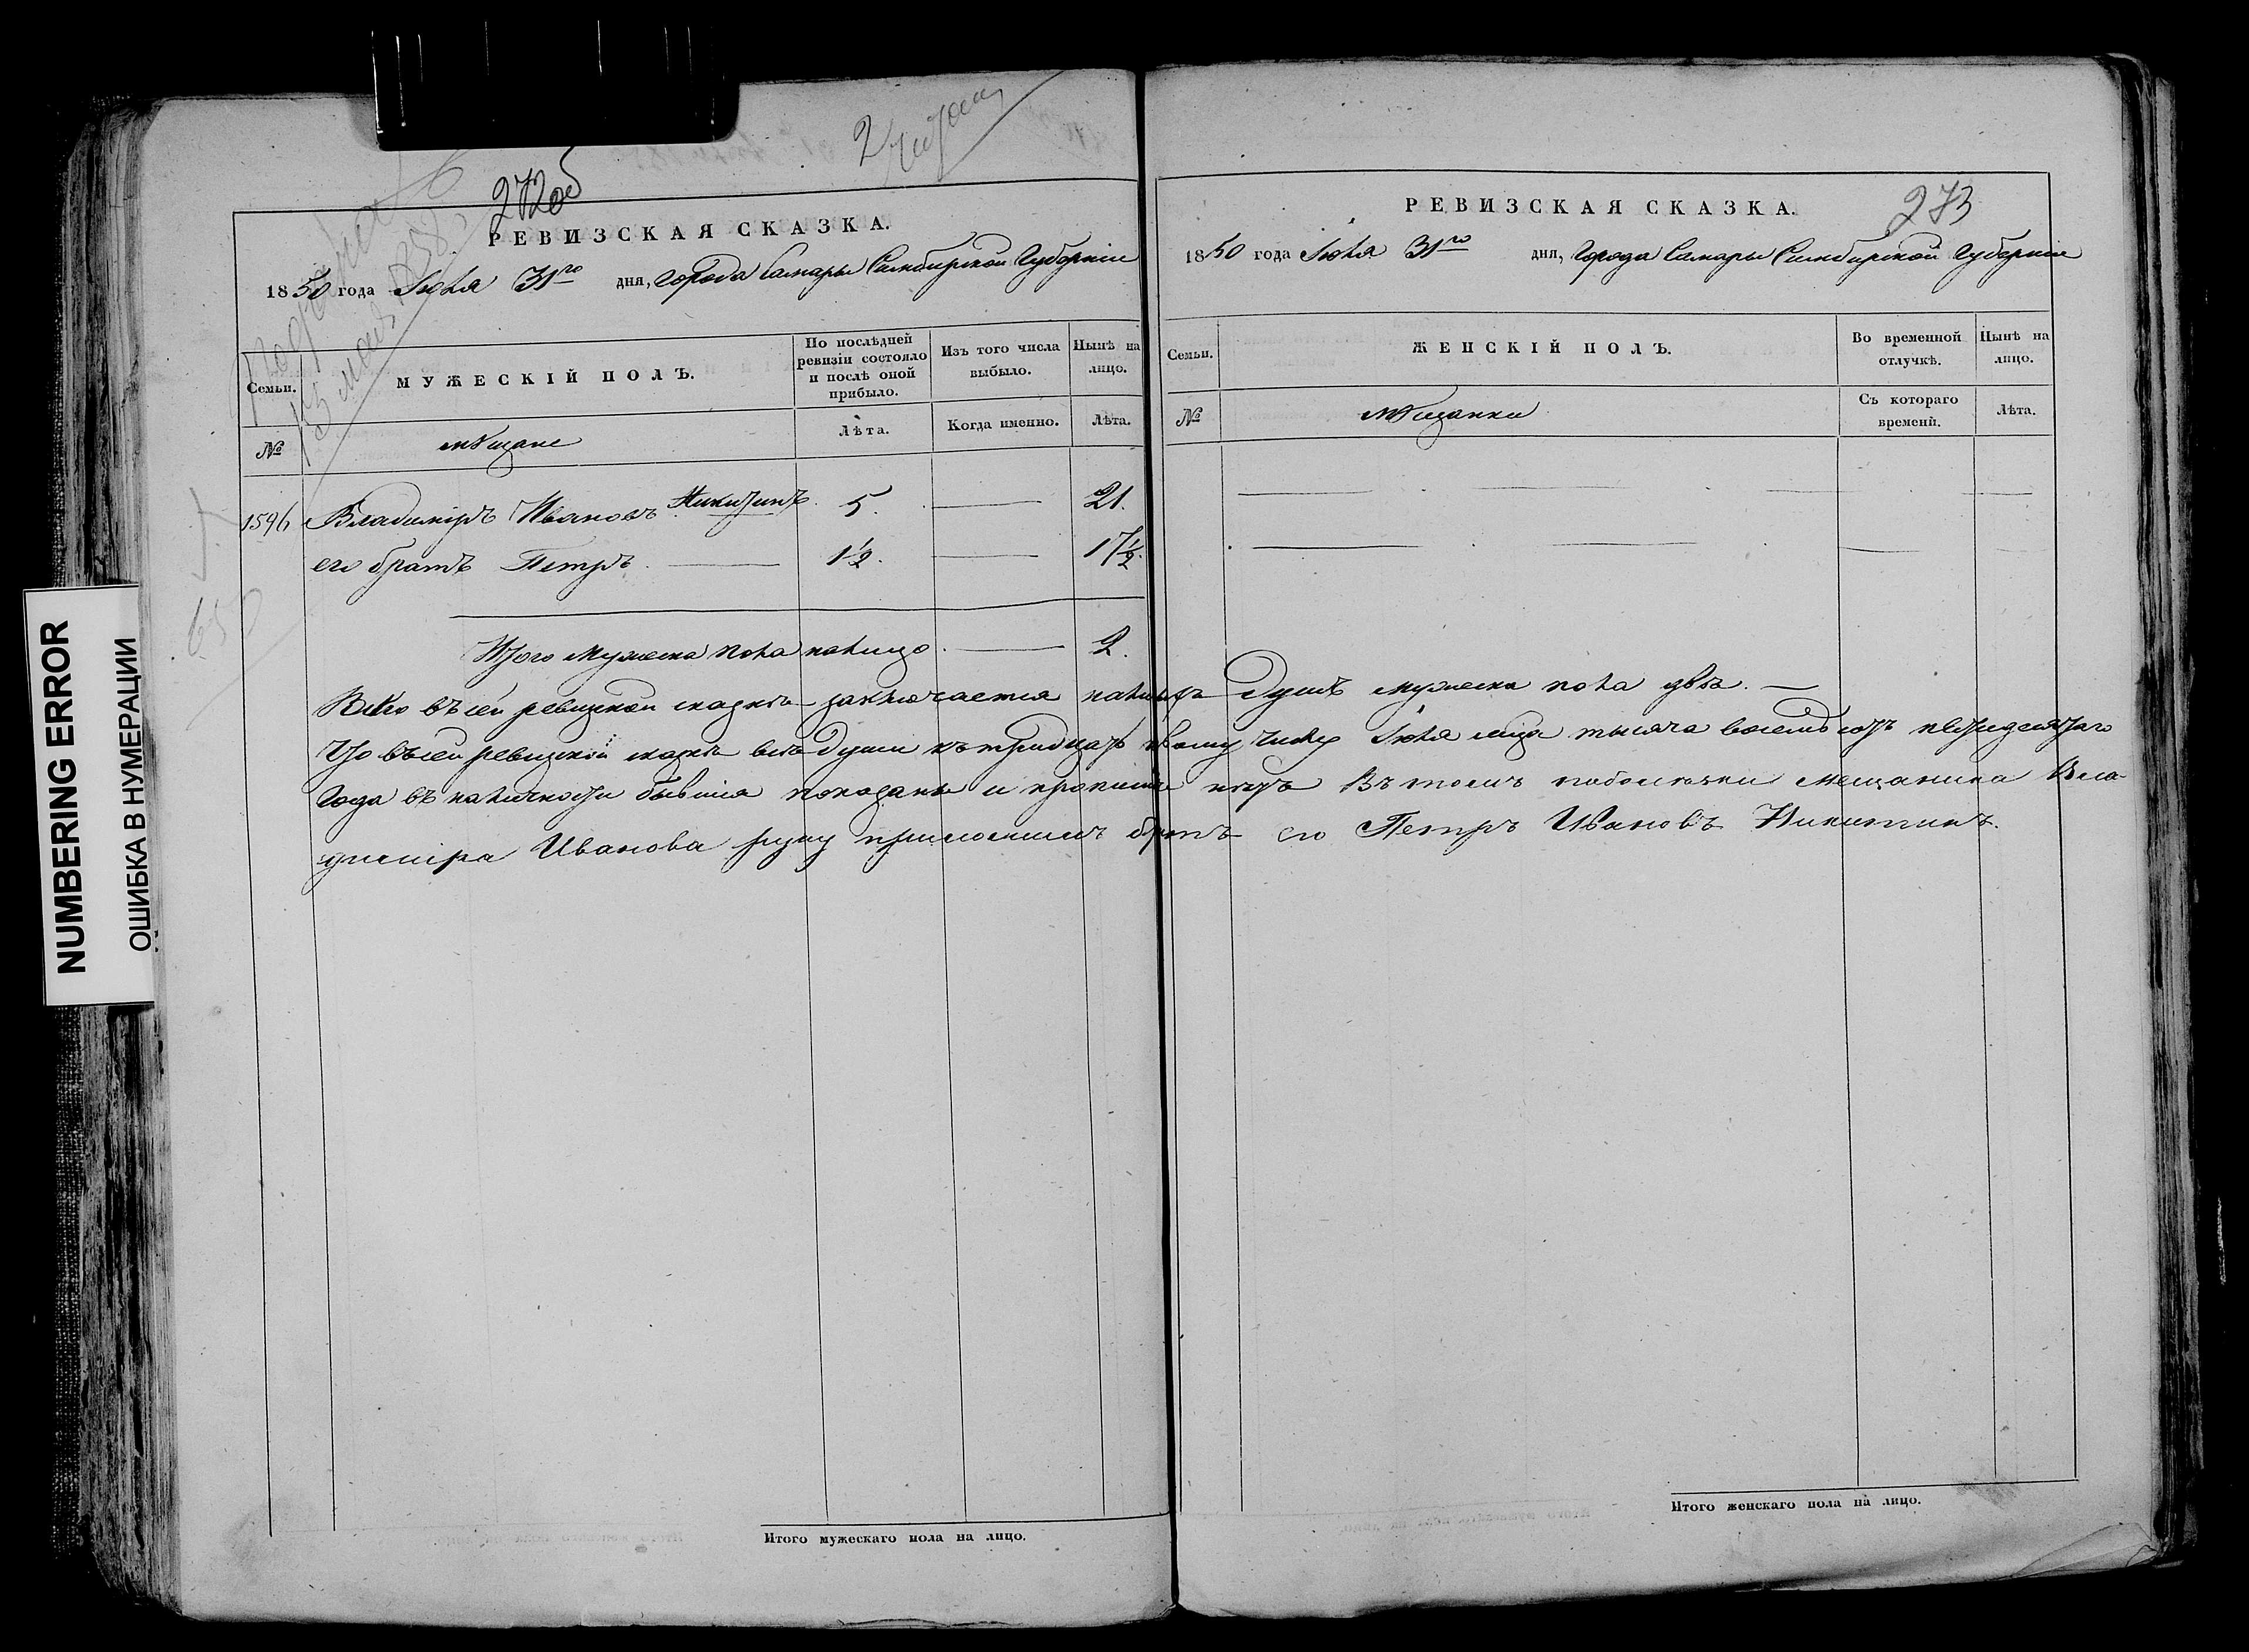 272об
РЕВИЗСКАЯ СКАЗКА.
1850 года Іюля 31го дня, города Самары Симбирской Губерніи
Семьи.
МУЖЕСКІЙ ПОЛЪ.
По послѣдней ревизіи состояло и послѣ оной прибыло.
Изъ того числа выбыло.
Нынѣ на лицо.
№
мѣщане
Лѣта.
Когда именно.
Лѣта.
1596 Владиміръ Ивановъ Никитинъ. 5. 21.
его братъ Петръ. 1½. 17½.
Итого мужеска пола налицо 2.
273
РЕВИЗСКАЯ СКАЗКА.
1850 года Іюля 31го дня, города Самары Симбирской Губерніи
Семьи.
ЖЕНСКІЙ ПОЛЪ.
Во временной отлучкѣ.
Нынѣ на лицо.
№
мѣщанки
Съ котораго времени.
Лѣта.
Всего въ сей ревизской сказкѣ заключается налицо душъ мужеска пола двѣ.
Что въ сей ревизской сказкѣ всѣ души къ тридцать первому числу Іюля мца тысяча восемьсотъ пятидесятаго
года въ наличности бывшія показаны и Въ томъ мещанина Вла-
диміра Иванова руку приложилъ братъ его Петръ Ивановъ Никитинъ.
Итого мужескаго пола на лицо.
Итого женскаго пола на лицо.
NUMBERING ERROR
ОШИБКА В НУМЕРАЦИИ